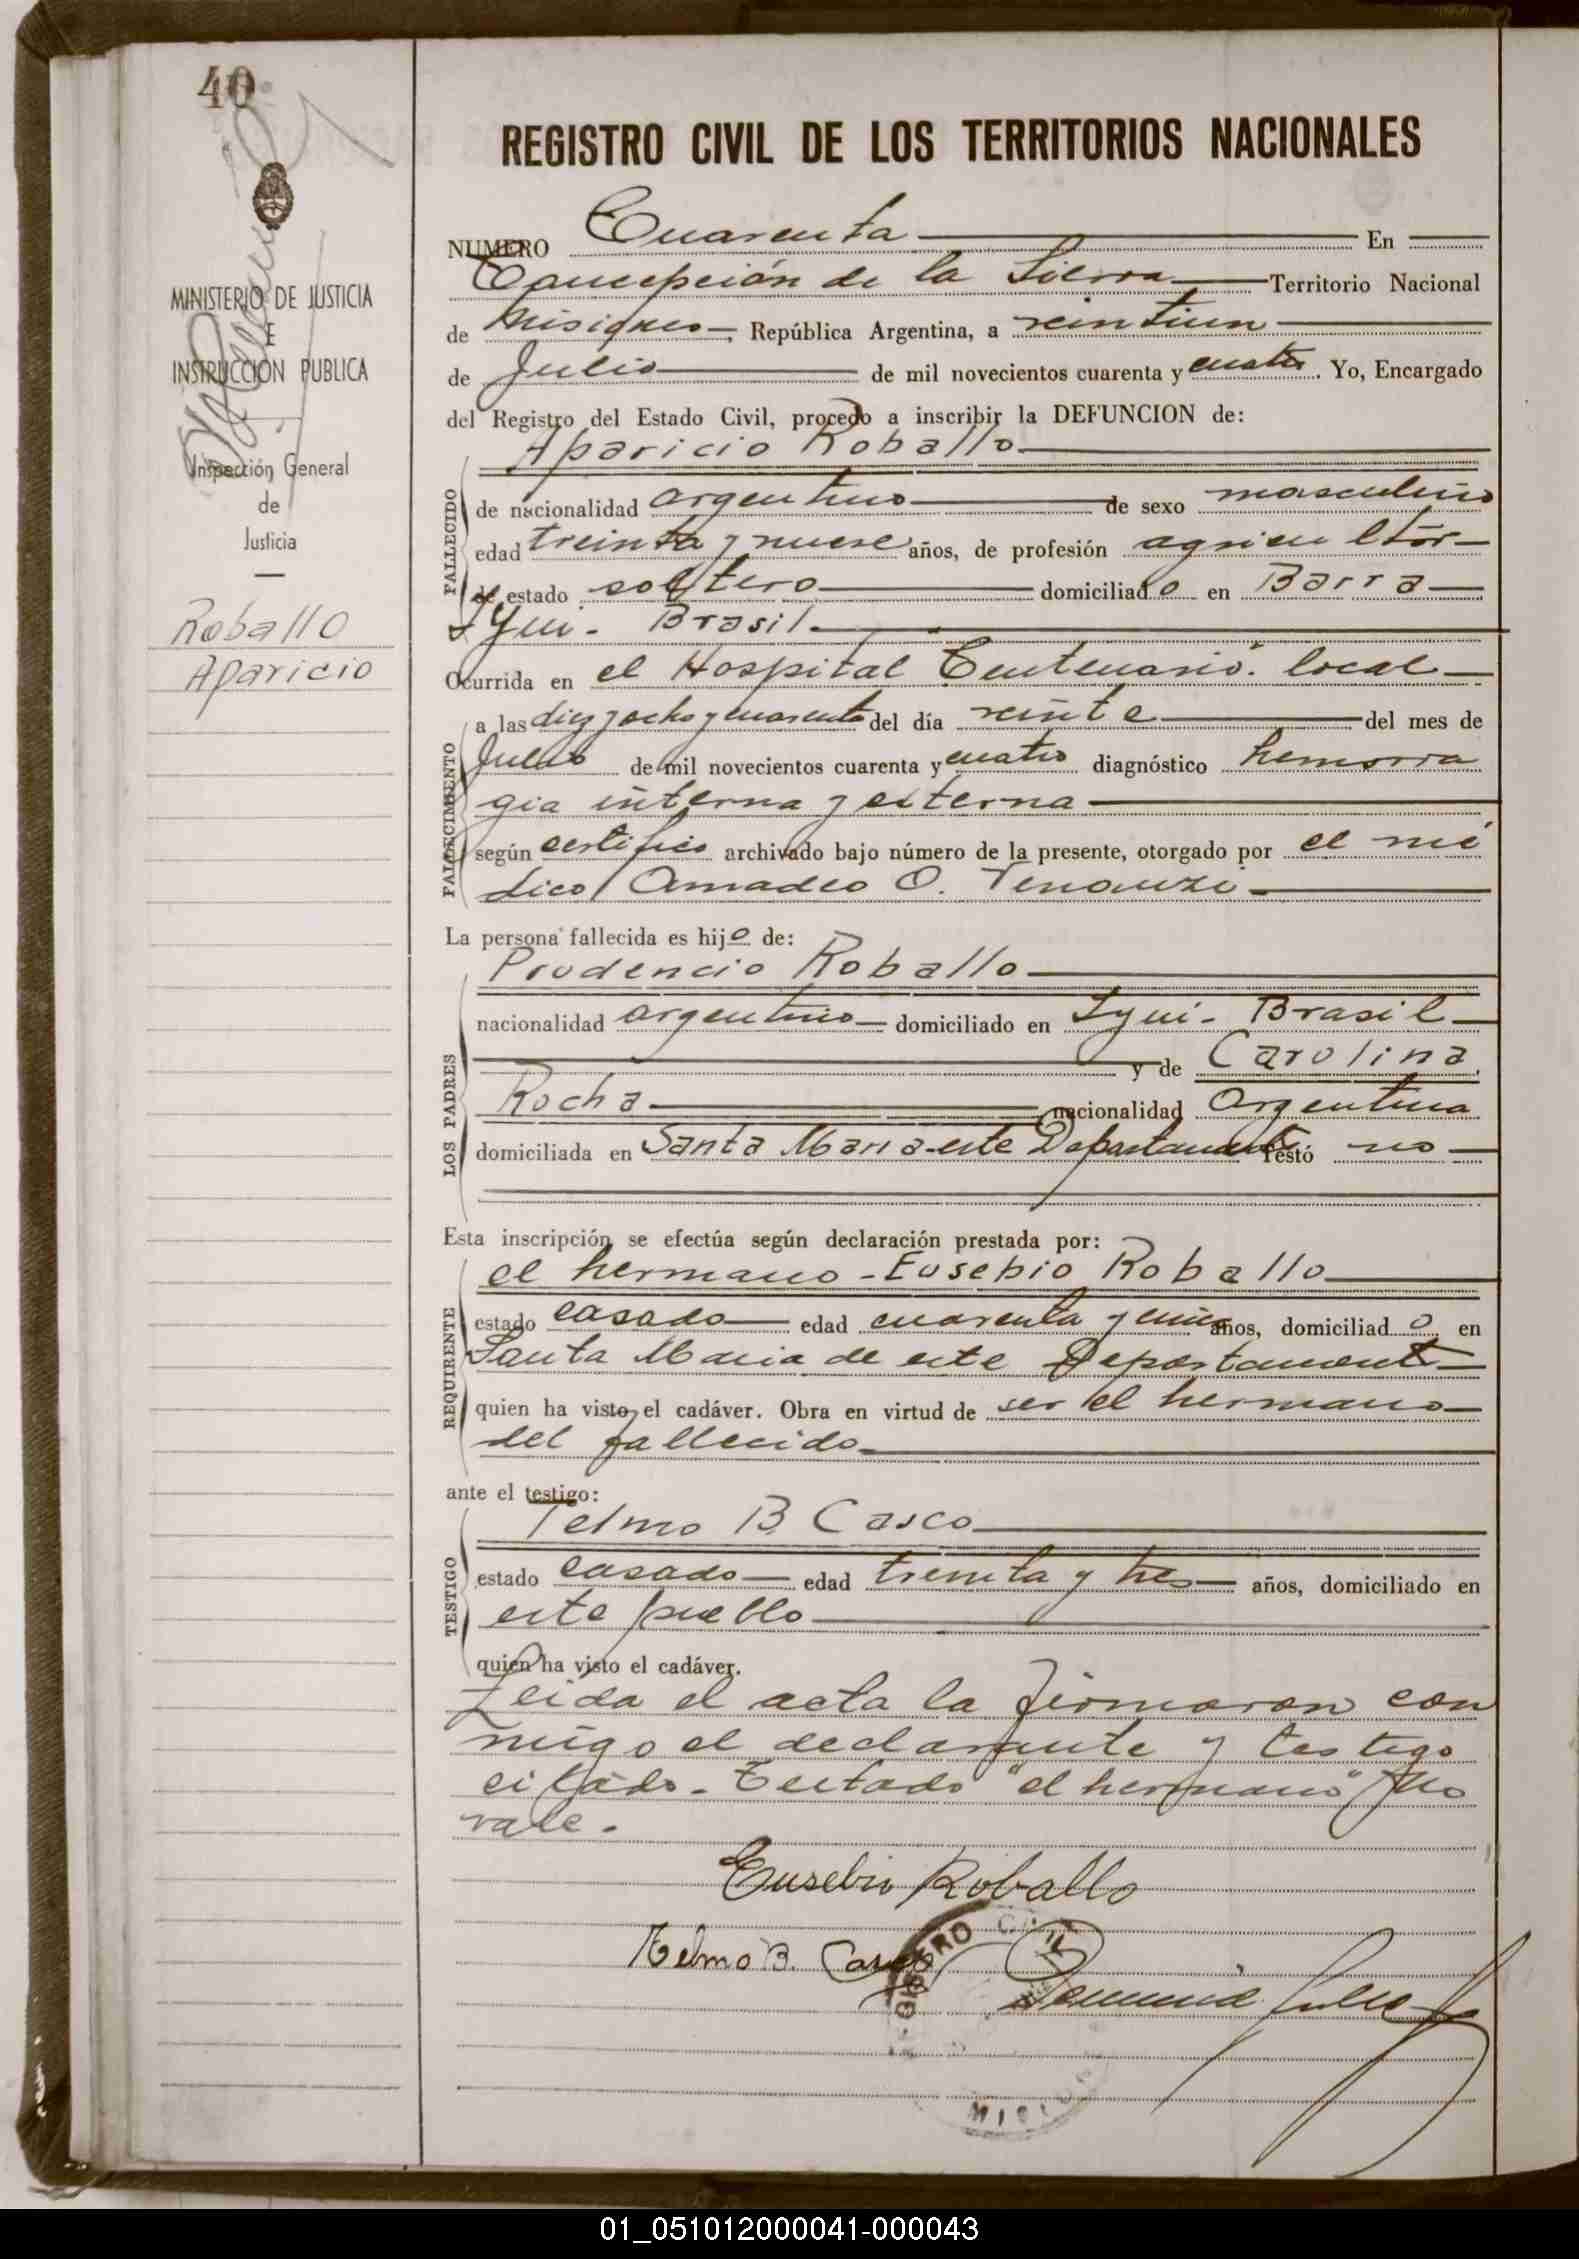 40
MINISTERIO DE JUSTICIA
E
INSTRUCCION PUBLICA
Inspección General
de
Justicia
Roballo
Aparicio
REGISTRO CIVIL DE LOS TERRITORIOS NACIONALES
NUMERO Cuarenta En
Concepción de la Sierra Territorio Nacional
de Misiones, República Argentina, a veintiun
de Julio de mil novecientos cuarenta y cuatro. Yo, Encargado
del Registro del Estado Civil, procedo a inscribir la DEFUNCION de:
Aparicio Roballo
FALLECIDO
de nacionalidad argentino de sexo masculino
edad treinta y nueve años, de profesión agricultor
de estado soltero domiciliado en Barra
Iyui - Brasil.
Ocurrida en el Hospital Centenario local
FALLECIMIENTO
a las diez y ocho y cuarenta del día veinte del mes de
Julio de mil novecientos cuarenta y cuatro diagnóstico hemorra
gia interna y externa
según certifico archivado bajo número de la presente, otorgado por el mé
dico Amadeo O. Venanzi
La persona fallecida es hijo de:
LOS PADRES
Prudencio Roballo
nacionalidad argentino domiciliado en Iyui - Brasil
y de Carolina
Rocha nacionalidad Argentina
domiciliada en Santa Maria este Departamento Testó no
Esta inscripción se efectúa según declaración prestada por:
REQUIRENTE
el hermano - Eusebio Roballo
estado casado edad cuarenta y cinco años, domiciliado en
Santa Maria de este Departamento
quien ha visto el cadáver. Obra en virtud de ser el hermano
del fallecido
ante el testigo:
TESTIGO
Telmo B. Casco
estado casado edad treinta y tres años, domiciliado en
este pueblo
quien ha visto el cadáver.
Leida el acta la firmaron con
migo el declarante y testigo
citado - Testado "el hermano" no
vale.
Eusebio Roballo
Telmo B. Casco
REGISTRO
01_051012000041-000043